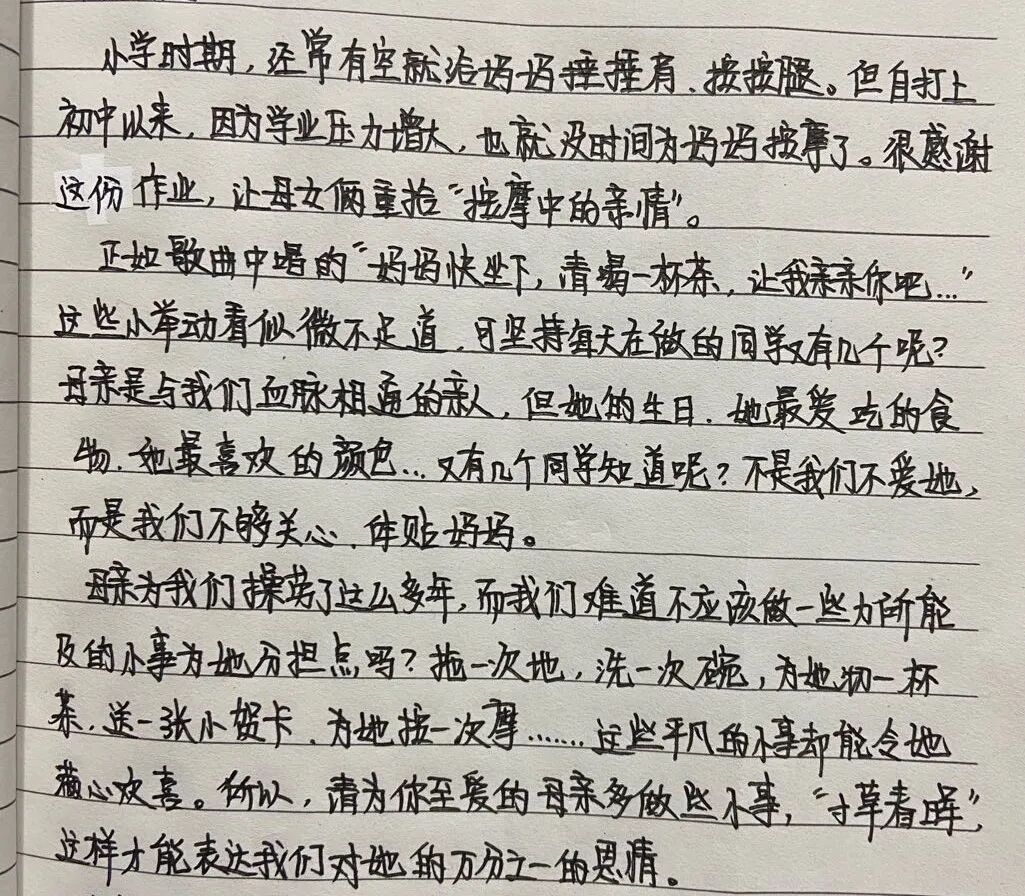 小学时期，还常有空就给妈妈捶捶肩、按按腿。但自打上
初中以来，因为学业压力增大，也就没时间为妈妈按摩了。很感谢
这份作业，让母女俩重拾“按摩中的亲情”。
正如歌曲中唱的“妈妈快坐下，请喝一杯茶，让我亲亲你吧…”
这些小举动看似微不足道，可坚持每天在做的同学又有几个呢？
母亲是与我们血脉相通的亲人，但她的生日、她最爱吃的食
物、她最喜欢的颜色…又有几个同学知道呢？不是我们不爱她，
而是我们不够关心、体贴妈妈。
母亲为我们操劳了这么多年，而我们难道不应该做一些力所能
及的小事为她分担点吗？拖一次地，洗一次碗，为她沏一杯
茶、送一张小贺卡、为她按一次摩……这些平凡的小事却能令她
满心欢喜。所以，请为你至爱的母亲多做些小事，“寸草春晖”，
这样才能表达我们对她的万分之一的恩情。